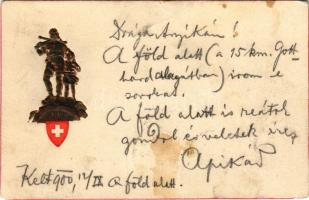 Drága Anyikám!
A föld alatt (a 15 km. Gott-
hard alagútban) irom e
sorokat.
A föld alatt is reátok
gondol és veletek
Apikád
Kelt 900, IX A föld alatt.